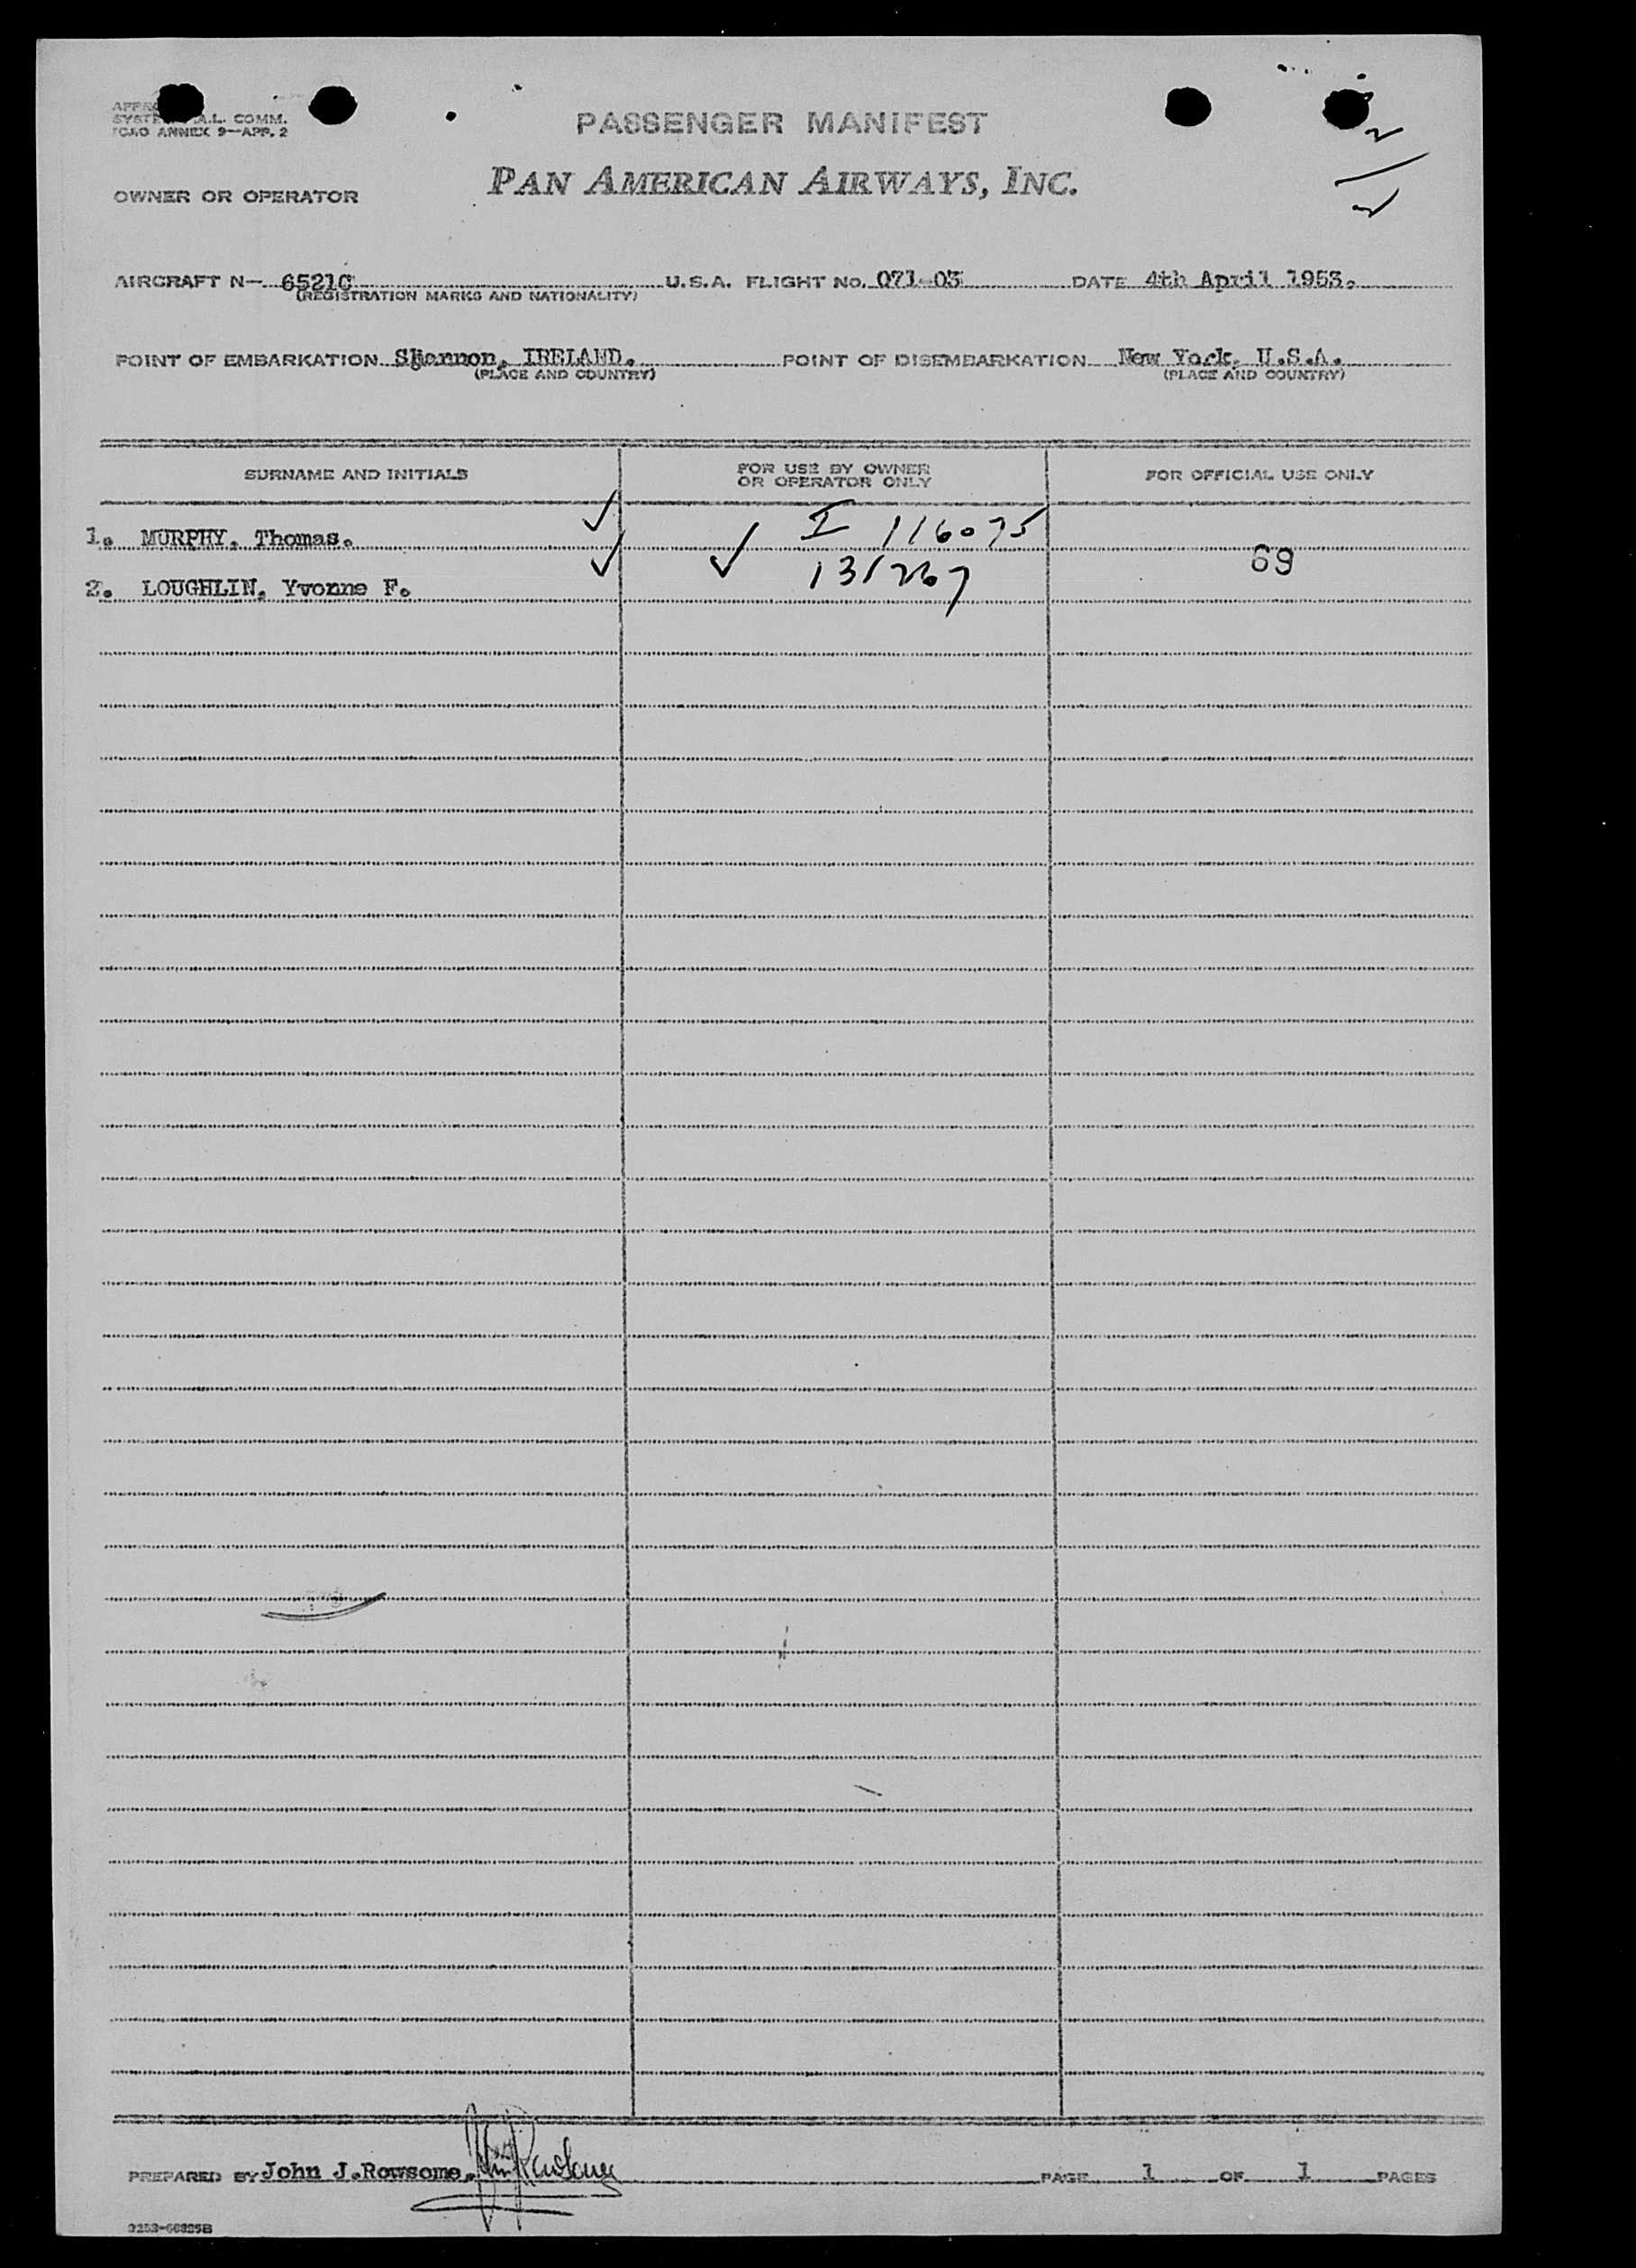 SYSTE A.L. COMM.
ICAO ANNEX 9—APP. 2
PASSENGER MANIFEST
OWNER OR OPERATOR
PAN AMERICAN AIRWAYS, INC.
AIRCRAFT N— 6521C U.S.A. FLIGHT NO. 071-03 DATE 4th April 1953.
(REGISTRATION MARKS AND NATIONALITY)
POINT OF EMBARKATION Shannon, IRELAND. POINT OF DISEMBARKATION New York, U.S.A.
(PLACE AND COUNTRY) (PLACE AND COUNTRY)
SURNAME AND INITIALS FOR USE BY OWNER OR OPERATOR ONLY FOR OFFICIAL USE ONLY
1. MURPHY, Thomas. I 116075
69
2. LOUGHLIN, Yvonne F. 131267
PREPARED BY John J.Rowsome. PAGE 1 OF 1 PAGES